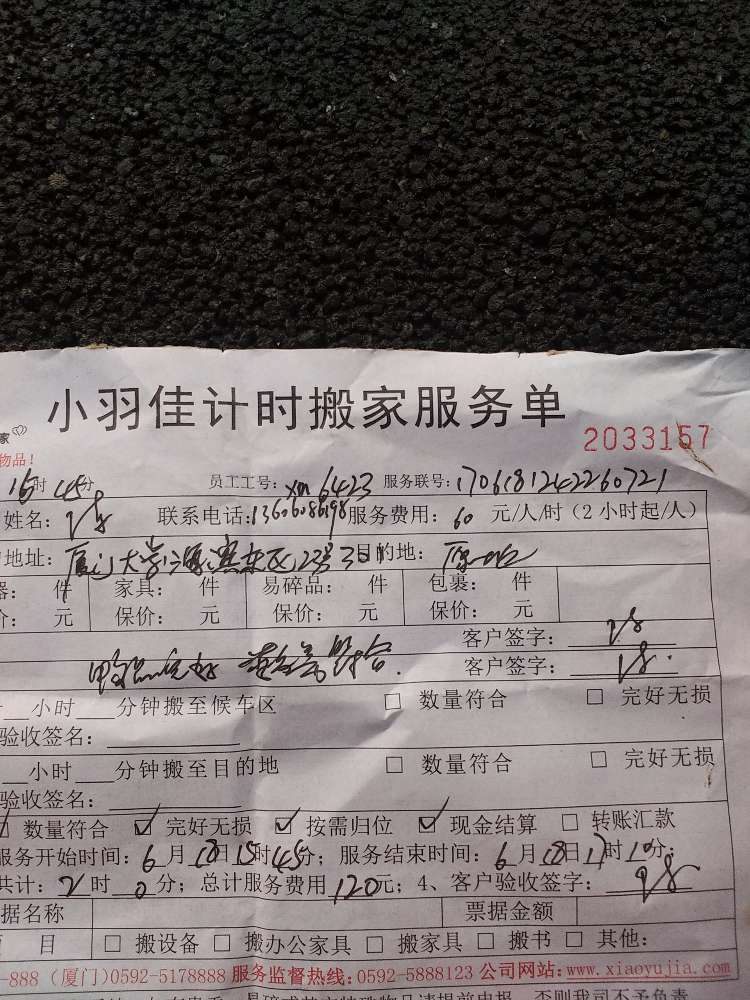 小羽佳计时搬家服务单
家
2033157
物品！
16时 45分 员工工号：xm 6423 服务联号：1706181242260721
姓名： 联系电话：13606086198 服务费用：60 元/人/时（2 小时起/人）
地址：厦门大学海滨东区 目的地：
器： 件 家具： 件 易碎品： 件 包裹： 件
价： 元 保价： 元 保价： 元 保价： 元
客户签字：
客户签字：
小时 分钟搬至候车区 □ 数量符合 □ 完好无损
验收签名：
小时 分钟搬至目的地 □ 数量符合 □ 完好无损
验收签名：
☑ 数量符合 ☑ 完好无损 ☑ 按需归位 ☑ 现金结算 □ 转账汇款
服务开始时间：6 月 18 日 15 时 45 分；服务结束时间：6 月 18 日 17 时 10 分；
共计：2 时 0 分；总计服务费用 120 元；4、客户验收签字：
据名称 票据金额
项 目 □ 搬设备 □ 搬办公家具 □ 搬家具 □ 搬书 □ 其他：
-888（厦门）0592-5178888 服务监督热线：0592-5888123 公司网站：www.xiaoyujia.com